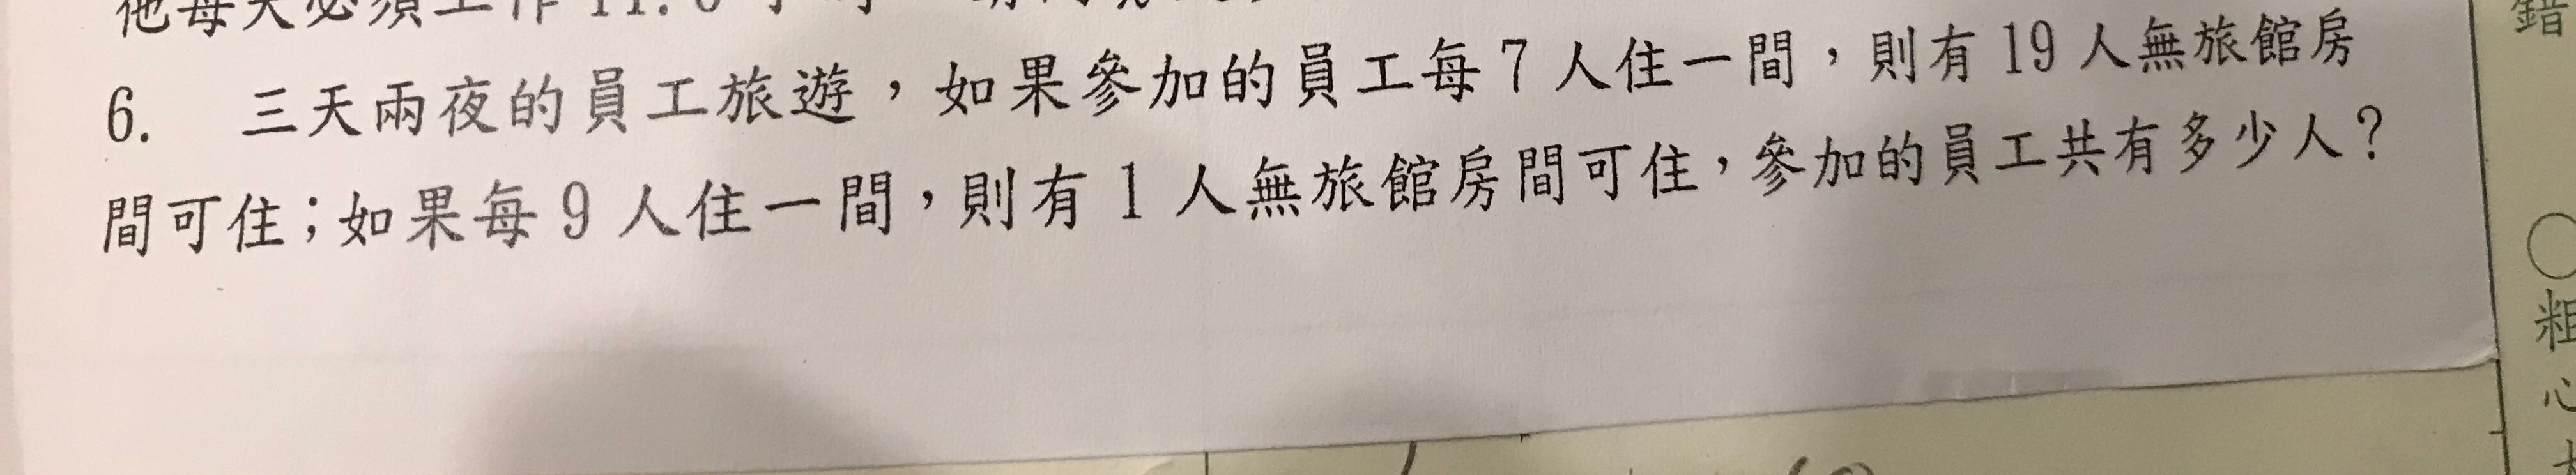 他每天必須工作11.6
6. 三天兩夜的員工旅遊，如果參加的員工每7人住一間，則有19人無旅館房
間可住；如果每9人住一間，則有1人無旅館房間可住，參加的員工共有多少人？
錯
○粗心